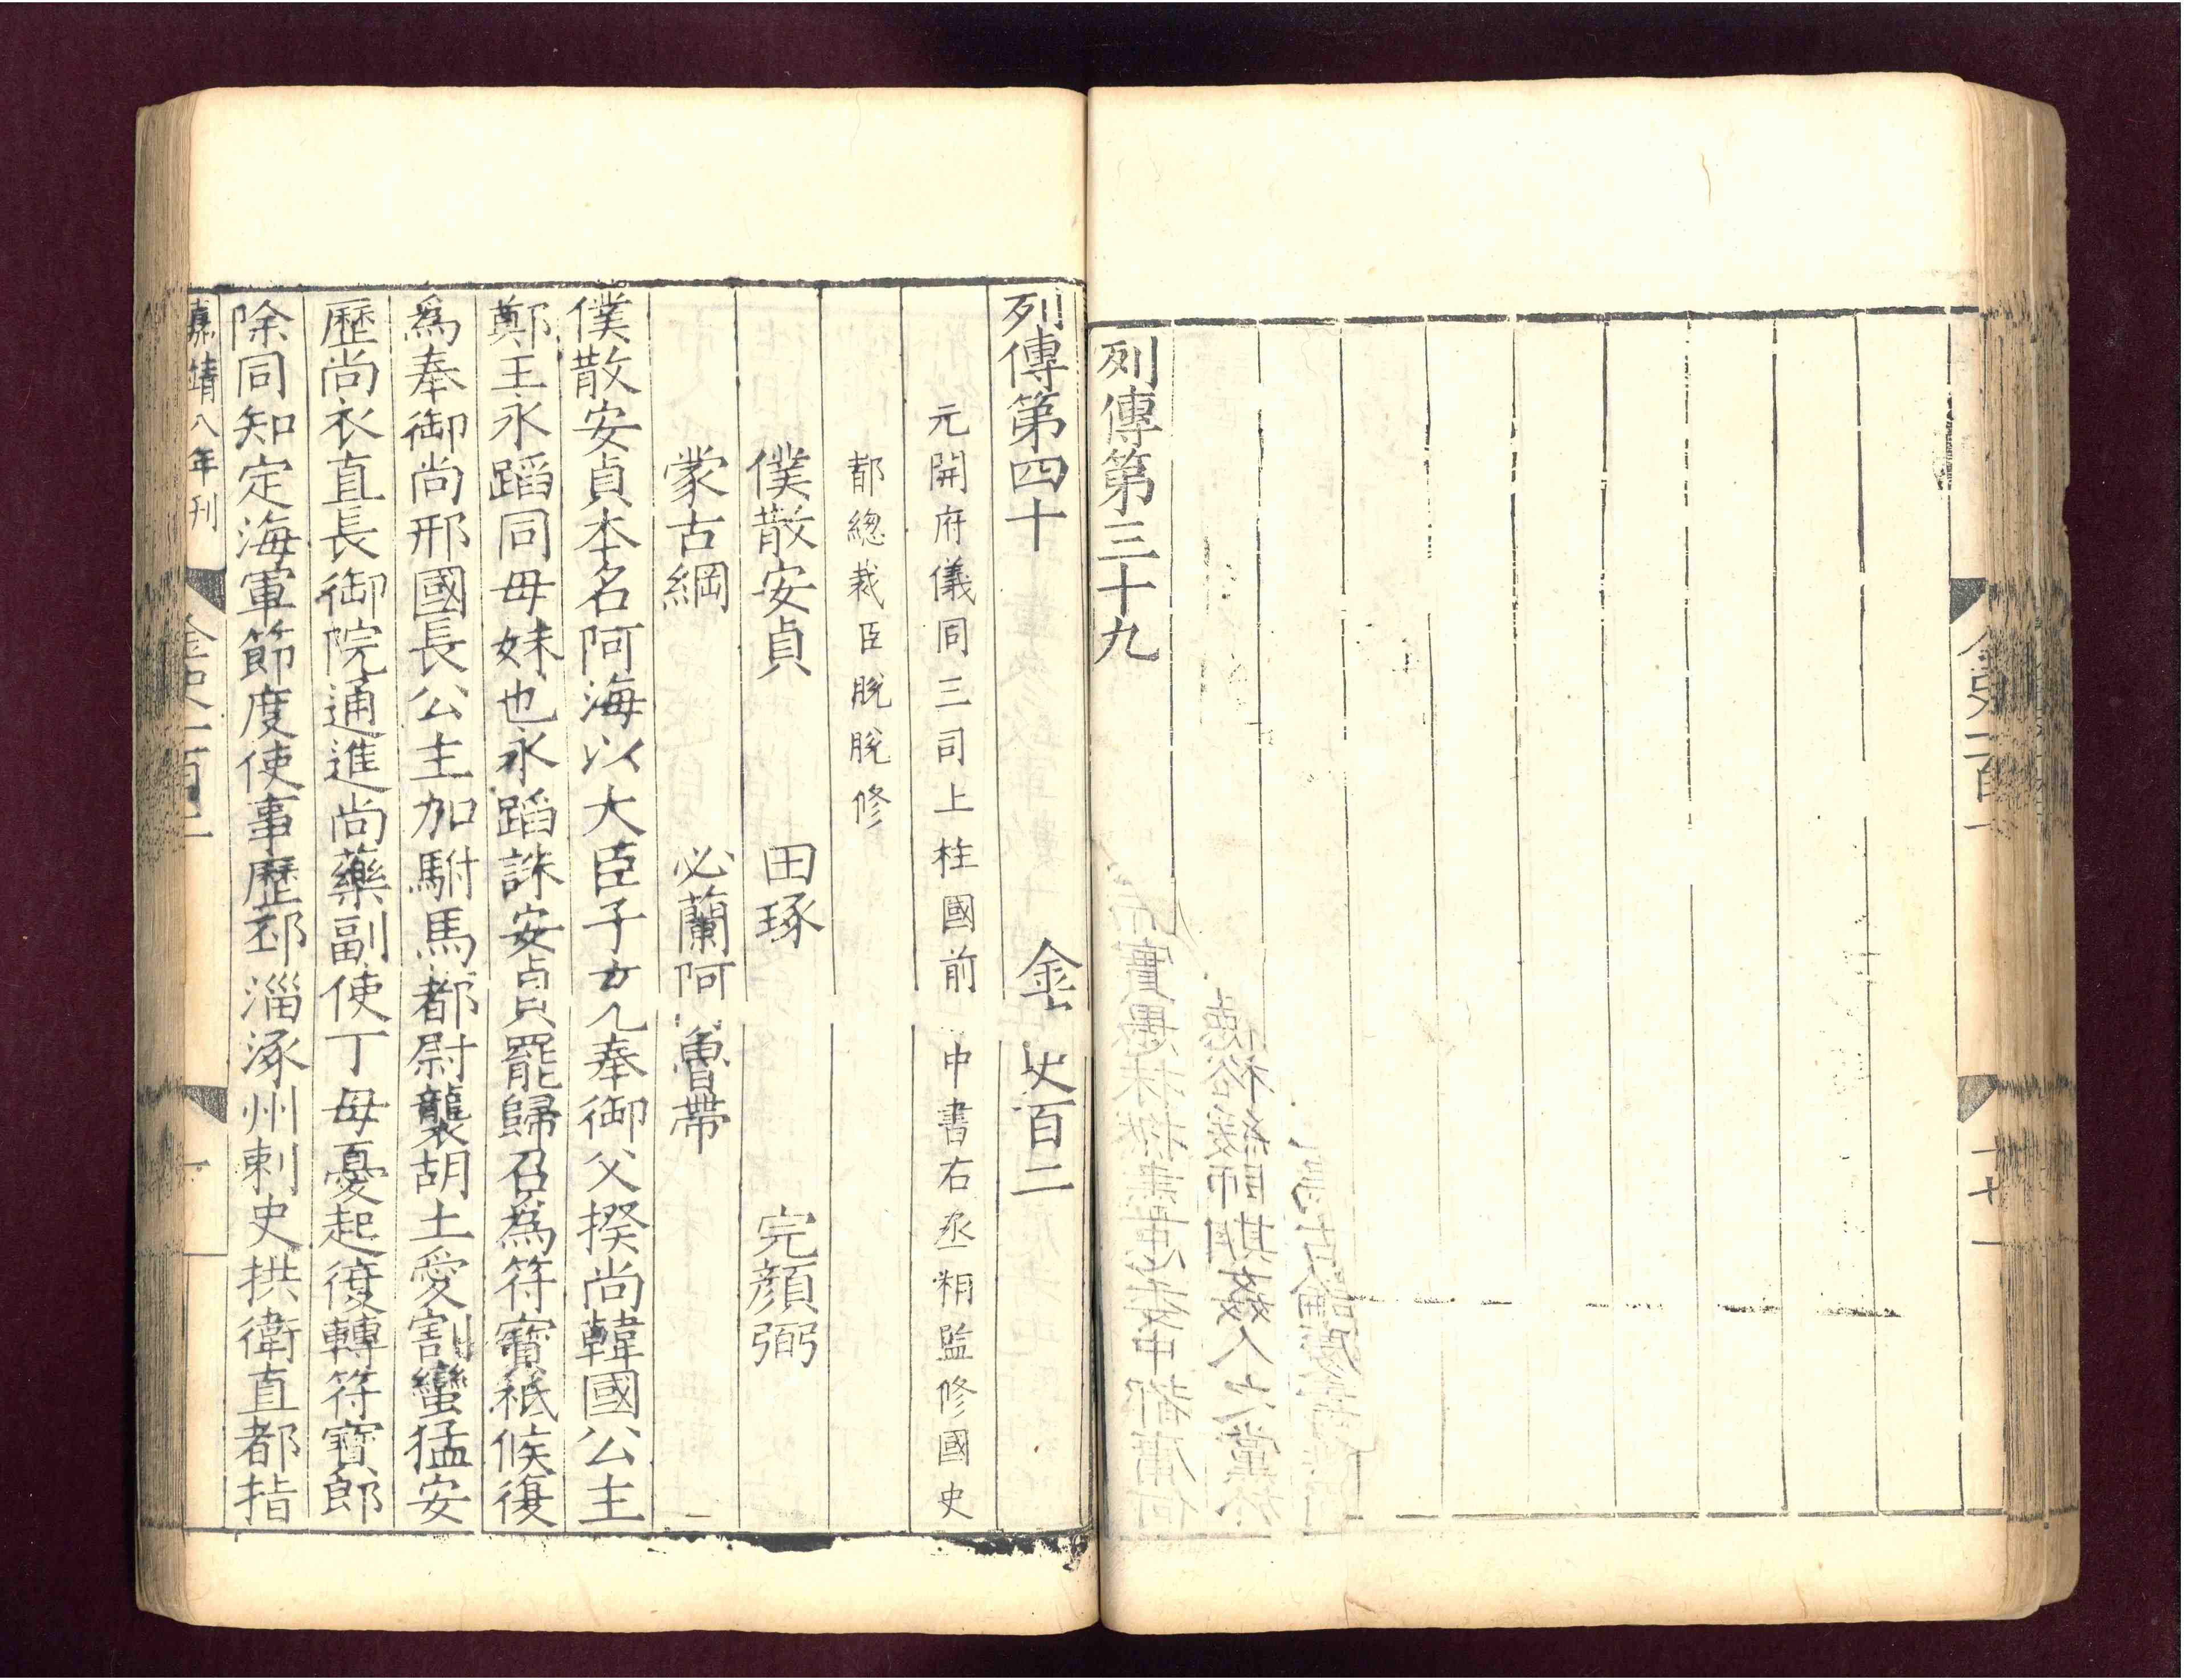 列傳第三十九
列傳第四十 金史百二
元開府儀同三司上柱國前中書右丞相監修國史
都總裁臣脫脫修
僕散安貞 田琢 完顏弼
蒙古綱 必蘭阿魯帶
僕散安貞本名阿海以大臣子女凡奉御父揆尚韓國公主
鄭王永蹈同母妹也永蹈誅安貞罷歸召為符寶祗候復
爲奉御尚邢國長公主加駙馬都尉襲胡土愛割蠻猛安
歷尚衣直長御院通進尚藥副使丁母憂起復轉符寶郎
除同知定海軍節度使事歷邳淄涿州刺史拱衛直都指
嘉靖八年刊 金史一百二 一